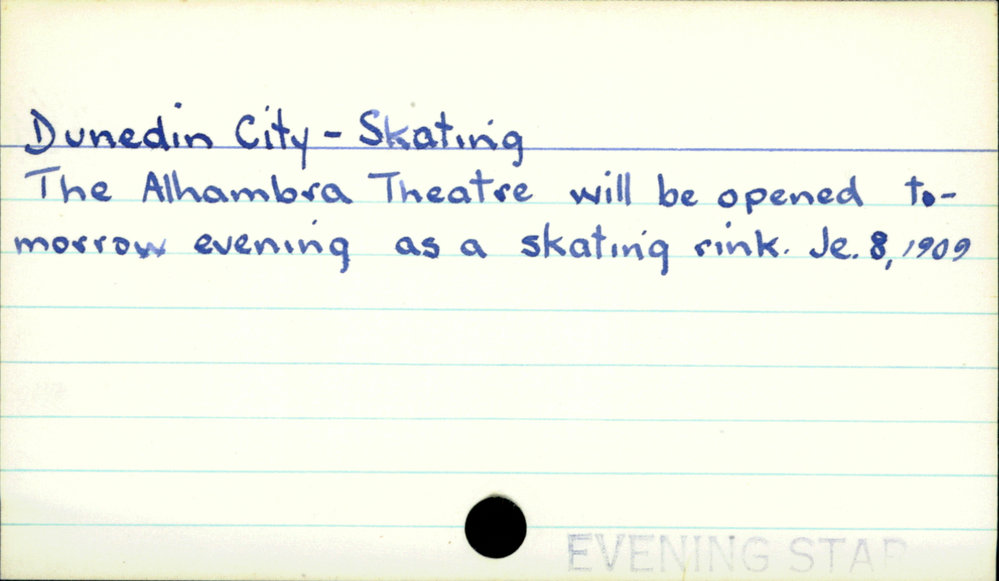 Dunedin City - Skating
The Alhambra Theatre will be opened to-
morrow evening as a skating rink. Je. 8, 1909
EVENING STAR